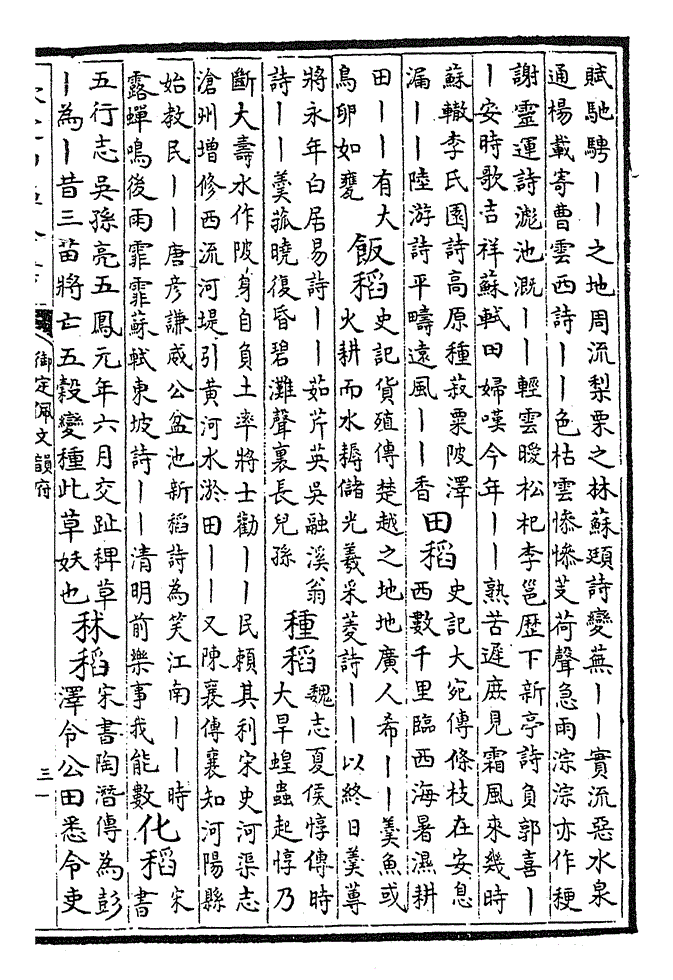 賦馳騁丨丨之地周流梨栗之林蘇頲詩變蕪丨丨實流惡水泉
通楊載寄曹雲西詩丨丨色枯雲慘慘芰荷聲急雨淙淙亦作稉
謝靈運詩滮池溉丨丨輕雲曖松杞李邕歷下新亭詩負郭喜丨
丨安時歌吉祥蘇軾田婦嘆今年丨丨熟苦遲庶見霜風來幾時
蘇轍李氏園詩高原種菽粟陂澤
漏丨丨陸游詩平疇遠風丨丨香
田稻
史記大宛傳條枝在安息
西數千里臨西海暑濕耕
田丨丨有大
鳥卵如甕
飯稻
史記貨殖傳楚越之地地廣人希丨丨羹魚或
火耕而水耨儲光羲采菱詩丨丨以終日羹蓴
將永年白居易詩丨丨茹芹英吳融溪翁
詩丨丨羹菰曉復昏碧灘聲裏長兒孫
種稻
魏志夏侯惇傳時
大旱蝗蟲起惇乃
斷大壽水作陂身自負土率將士勸丨丨民賴其利宋史河渠志
滄州增修西流河堤引黄河水淤田丨丨又陳襄傳襄知河陽縣
始教民丨丨唐彦謙咸公盆池新稻詩為笑江南丨丨時
露蟬鳴後雨霏霏蘇軾東坡詩丨丨清明前樂事我能數
化稻
宋
書
五行志吳孫亮五鳳元年六月交趾稗草
丨為丨昔三苗將亡五穀變種此草妖也
秫稻
宋書陶潛傳為彭
澤令公田悉令吏
御定佩文韻府
三一